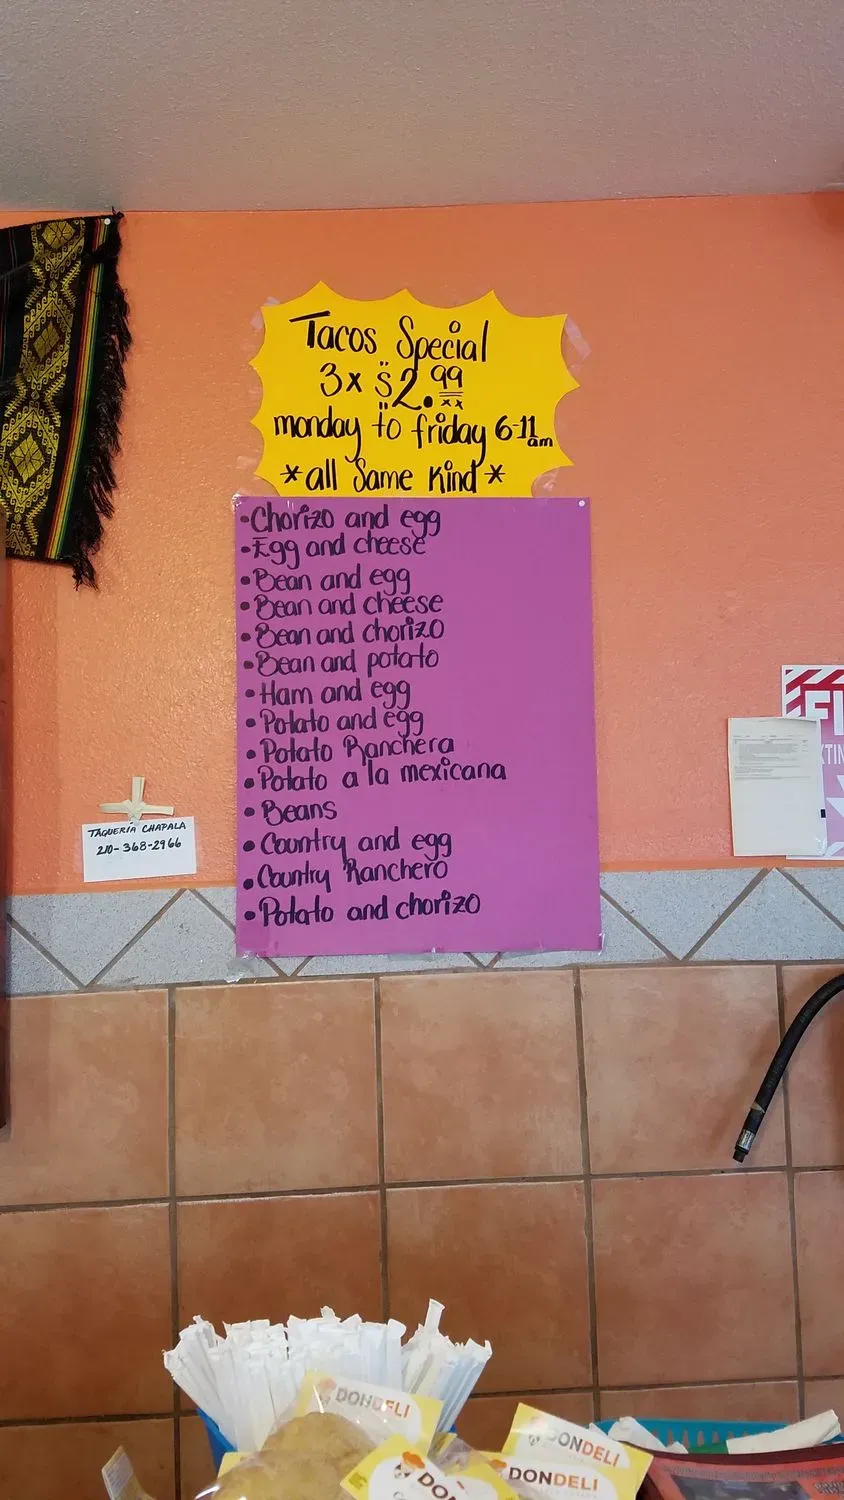 Tacos Special
3x $2.99
monday to friday 6-11am
*all Same Kind*
•Chorizo and egg
•Egg and cheese
•Bean and egg
•Bean and cheese
•Bean and chorizo
•Bean and potato
•Ham and egg
•Potato and egg
•Potato Ranchera
•Potato a la mexicana
•Beans
•Country and egg
•Country Ranchero
•Potato and chorizo
TAQUERÍA CHAPALA
210-368-2966
DONDELI
DONDELI
DONDELI